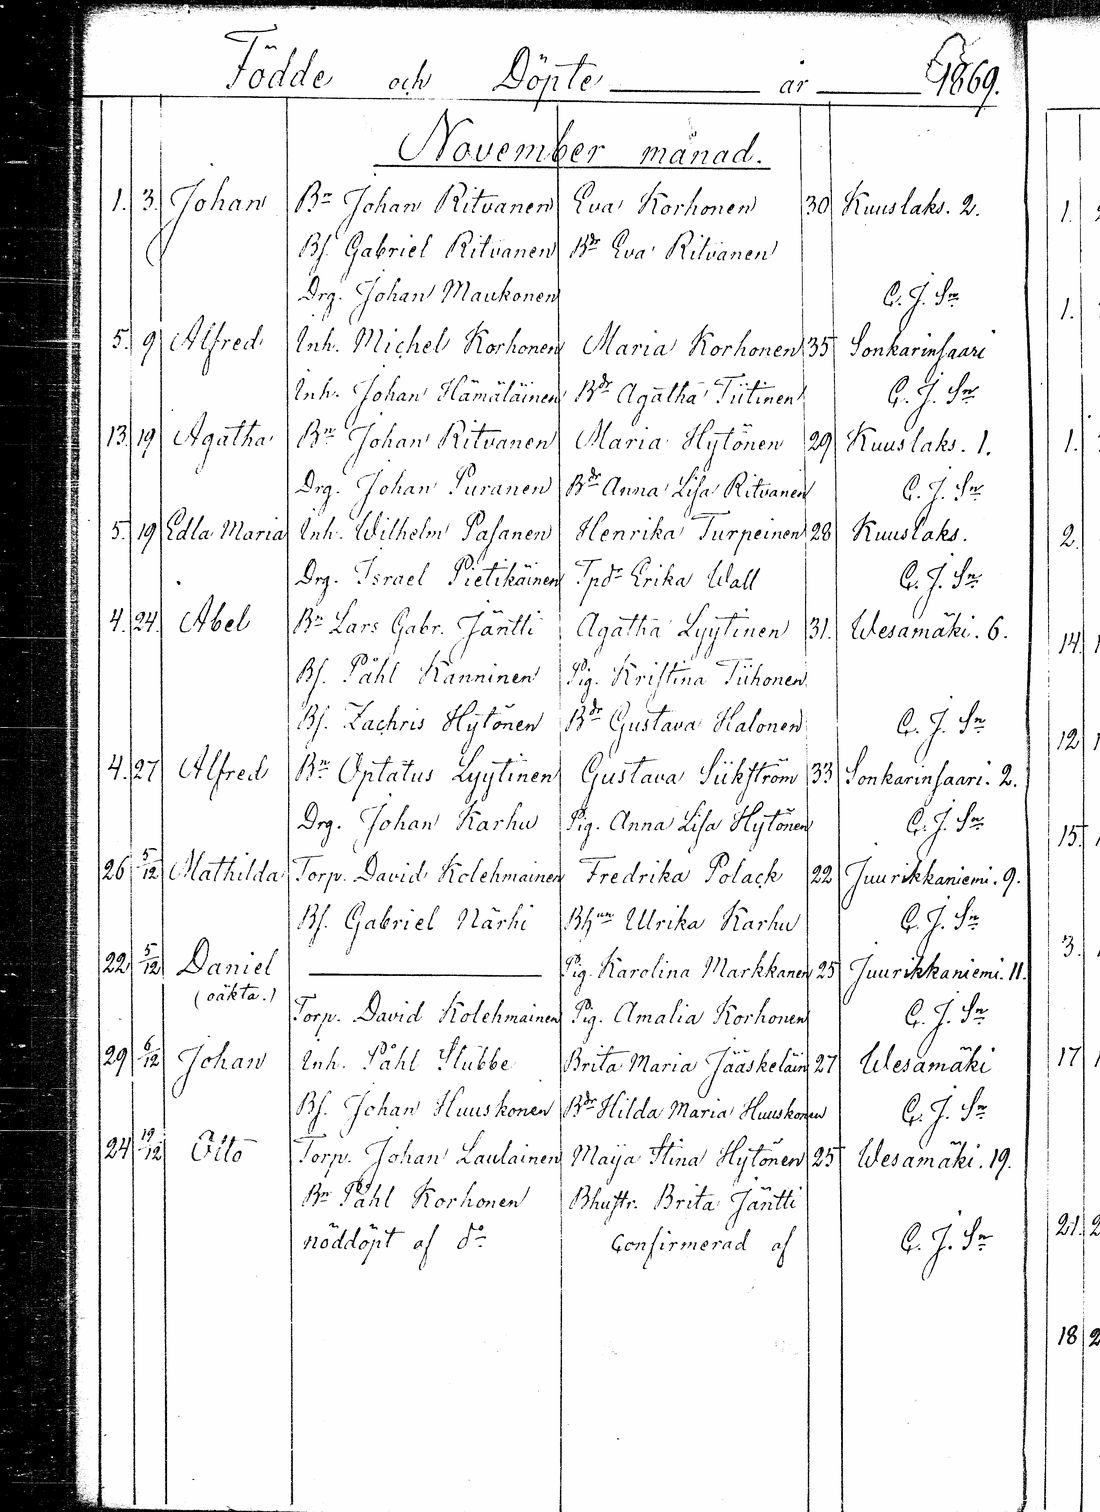 Födde och Döpte år 1869.
November månad.
1. 3. Johan Bn Johan Ritvanen Eva Korhonen 30 Kuuslaks. 2.
Bf. Gabriel Ritvanen Bdr Eva Ritvanen
Drg. Johan Maukonen C. J. Sn
5. 9 Alfred Inh. Michel Korhonen Maria Korhonen 35 Sonkarinsaari
Inh. Johan Hämäläinen Bdr Agatha Tiitinen C. J. Sn
13. 19 Agatha Bn Johan Ritvanen Maria Hytönen 29 Kuuslaks. 1.
Drg. Johan Puranen Bdr Anna Lisa Ritvanen C. J. Sn
5. 19 Edla Maria Inh. Wilhelm Pasanen Henrika Turpeinen 28 Kuuslaks.
Drg. Israel Pietikäinen Tpdr Erika Wall C. J. Sn
4. 24. Abel Bn Lars Gabr. Jäntti Agatha Lyytinen 31. Wesamäki. 6.
Bf. Påhl Kanninen Pig. Kristina Tiihonen
Bf. Zachris Hytönen Bdr Gustava Halonen C. J. Sn
4. 27 Alfred Bn Optatus Lyytinen Gustava Siikström 33 Sonkarinsaari. 2.
Drg. Johan Karhu Pig. Anna Lisa Hytönen C. J. Sn
26 5/12 Mathilda Torp. David Kolehmainen Fredrika Polack 22 Juurikkaniemi. 9.
Bf. Gabriel Närhi Bhun Ulrika Karhu C. J. Sn
22 5/12 Daniel Pig. Karolina Markkanen 25 Juurikkaniemi. 11.
(oäkta.)
Torp. David Kolehmainen Pig. Amalia Korhonen C. J. Sn
29 6/12 Johan Inh. Påhl Stubbe Brita Maria Jääskeläin 27 Wesamäki
Bf. Johan Huuskonen Bdr Hilda Maria Huuskonen C. J. Sn
24 19/12 Otto Torp. Johan Laulainen Maija Stina Hytönen 25 Wesamäki. 19.
Bn Påhl Korhonen Bhustr. Brita Jäntti
nöddöpt af do Confirmerad af C. J. Sn
1.
1.
1.
2.
14.
12
15.
3.
17
21.
18